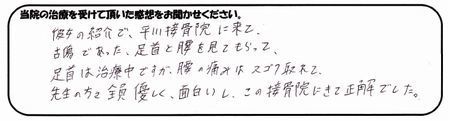 当院の治療を受けて頂いた感想をお聞かせください。
彼女の紹介で、平川接骨院に来て、
古傷であった、足首と腰を見てもらって、
足首は治療中ですが、腰の痛みはスゴク取れて、
先生の方も全員優しく、面白いし、この接骨院にきて正解でした。